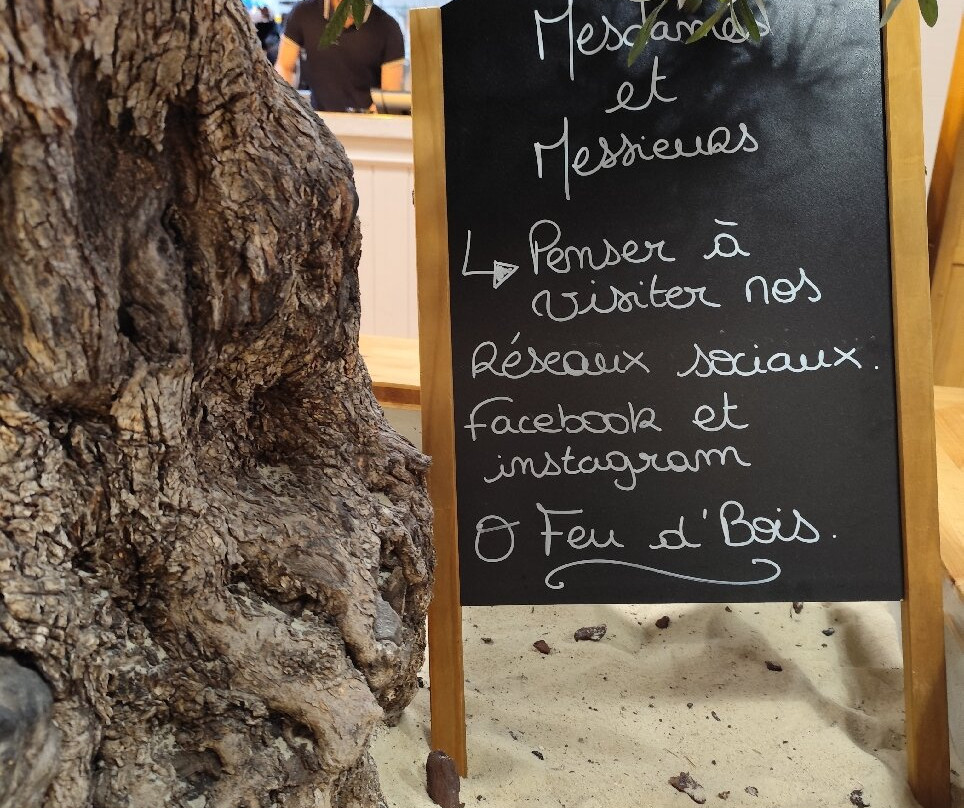 Mesdames
et
Messieurs
Penser à
visiter nos
Réseaux sociaux.
Facebook et
instagram
O Feu d'Bois.